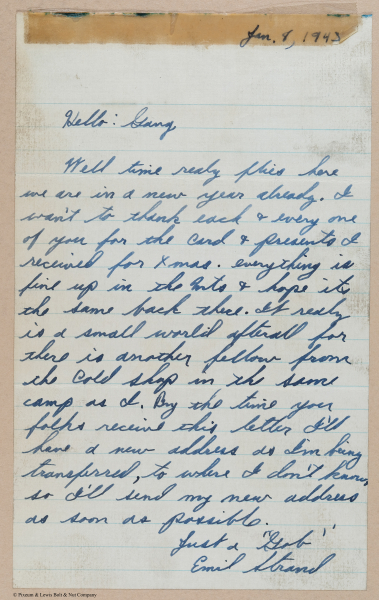 Jan. 8, 1943
Hello: Gang
Well time realy flies here
we are in a new year already. I
wan't to thank each & every one
of you for the card & presents I
received for Xmas. everything is
fine up in the Mts & hope its
the same back there. It realy
is a small world afterall for
there is another fellow from
the Cold shop in the same
camp as I. By the time you
folks receive this letter I'll
have a new address as I'm being
transferred, to where I don't know,
so I'll send my new address
as soon as possible.
Just a "Gob",
Emil Strand
© Pitzman & Lewis Bolt & Nut Company